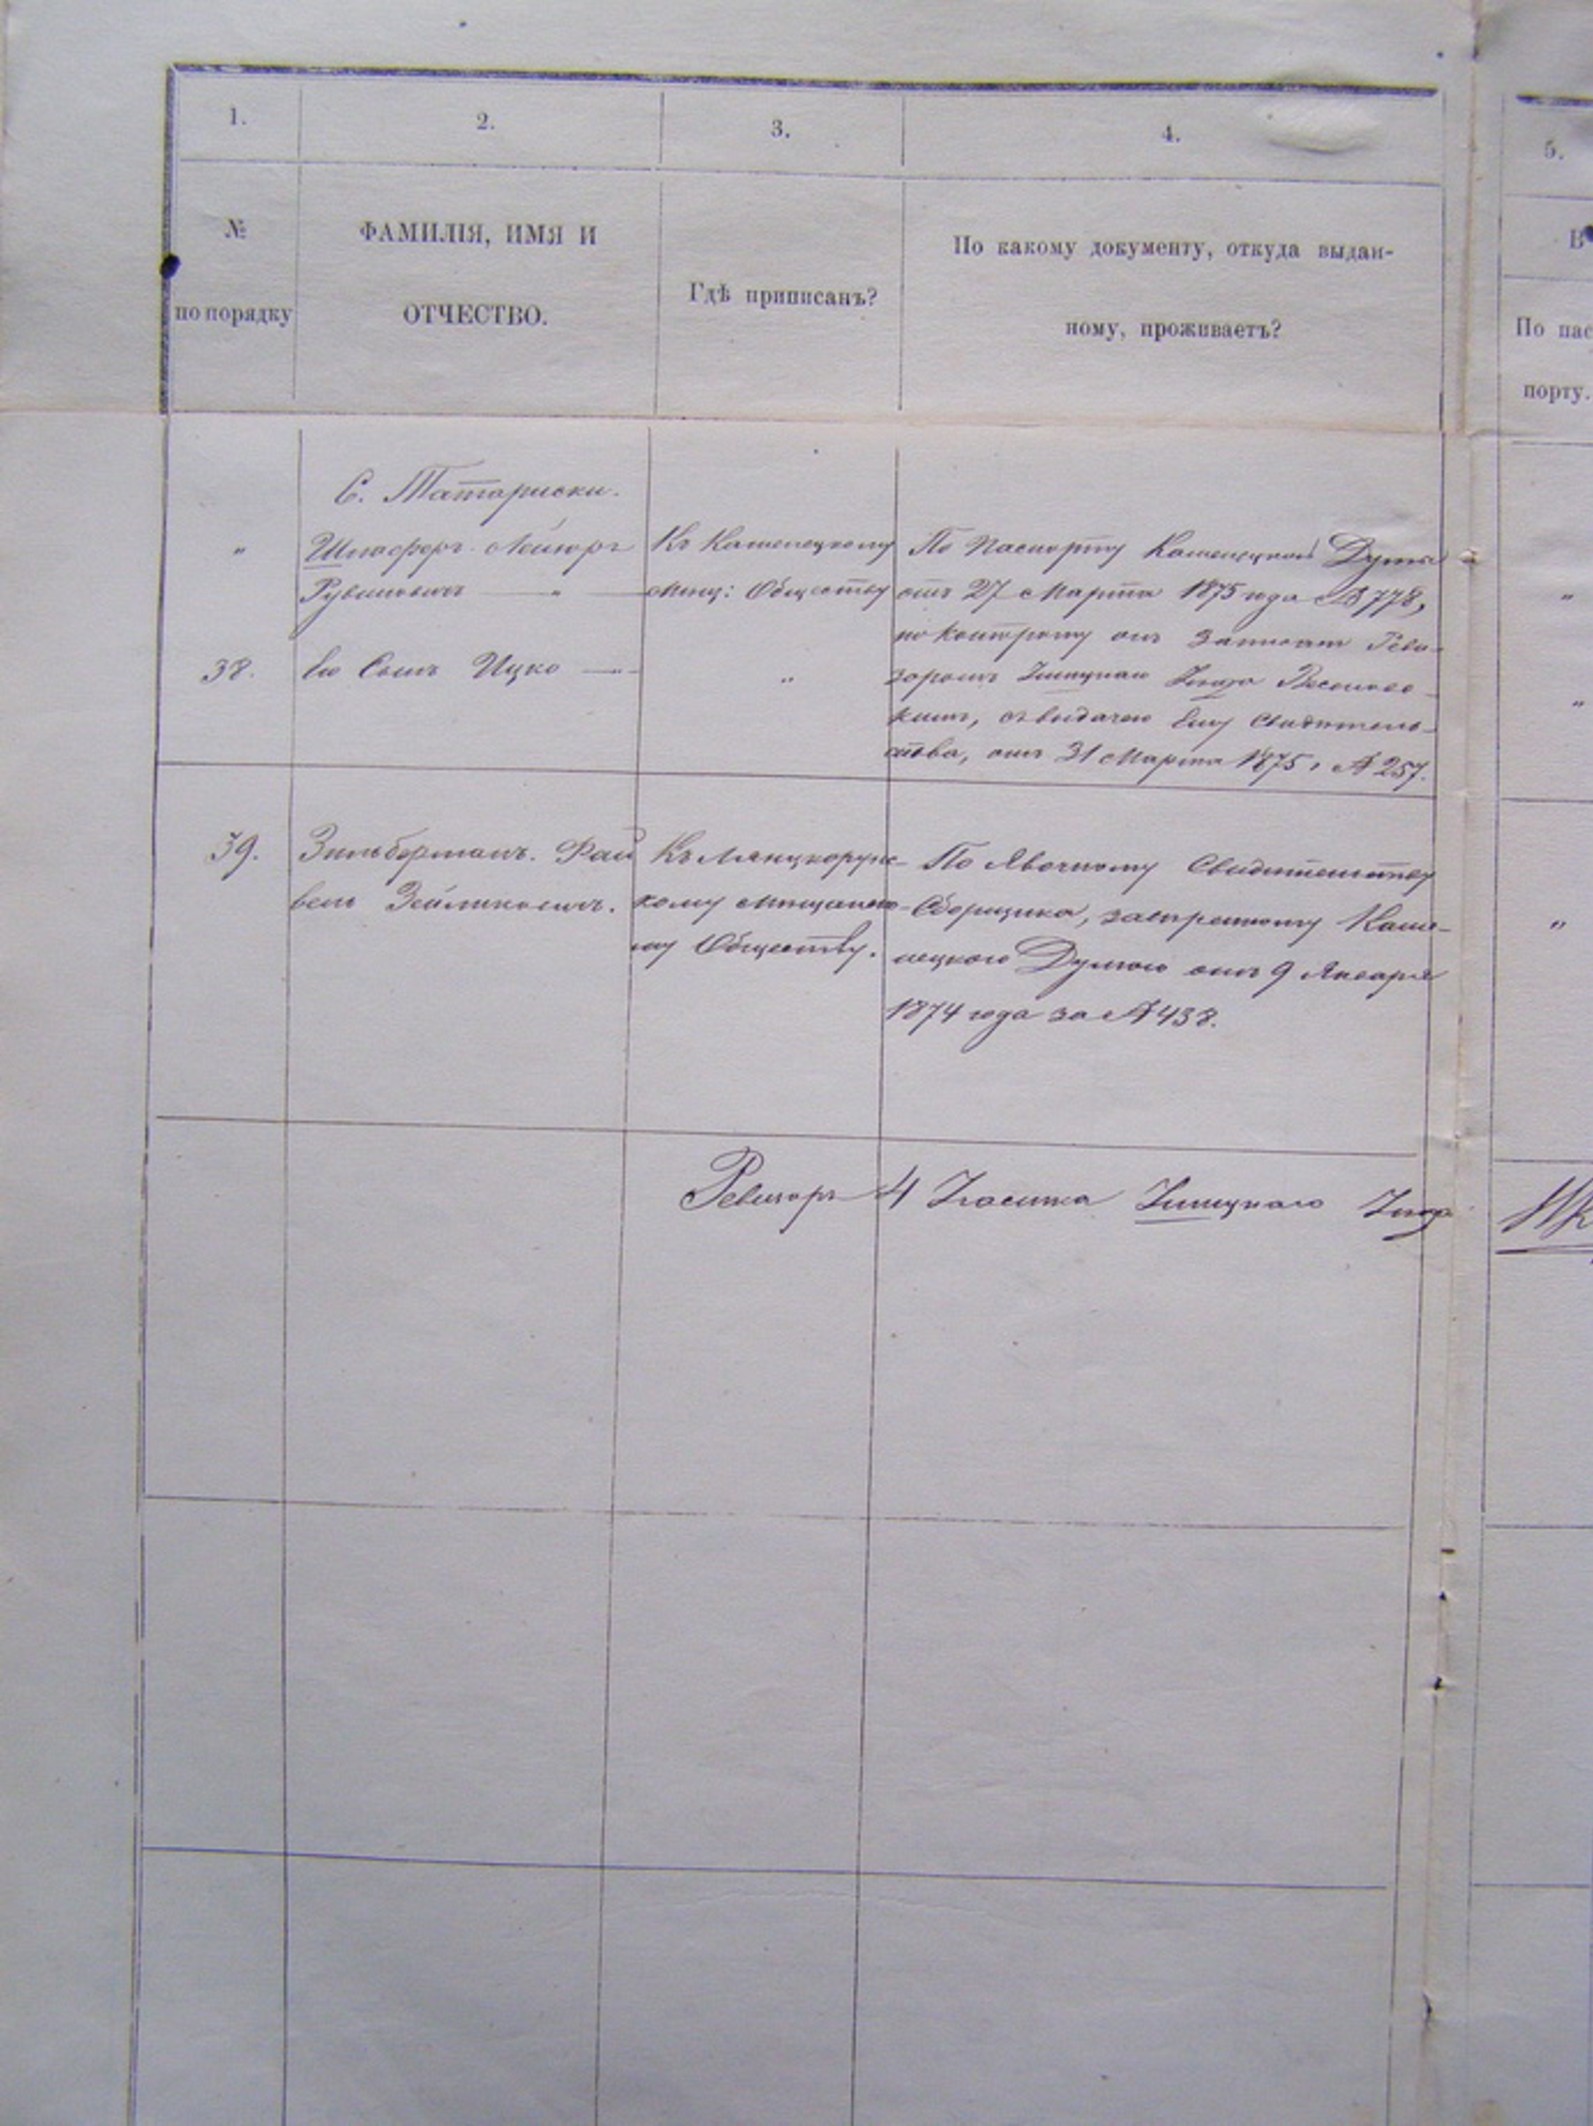 1.
2.
3.
4.
5.
№
по порядку
ФАМИЛІЯ, ИМЯ И
ОТЧЕСТВО.
Гдѣ приписанъ?
По какому документу, откуда выдан-
ному, проживаетъ?
В
По пас
порту.
С. Татариски.
"
Рувиновичъ — " —
Къ Каменецкому
Мѣщ: Обществу
По Паспорту Каменецкой Думы
отъ 27 Марта 1875 года № 778,
по которому онъ записанъ Реви-
зоромъ Ушицкаго Уѣзда
кимъ, съ выдачею Ему Свидѣтель-
ства, отъ 31 Марта 1875 г № 257.
"
38.
Его Сынъ Ицко — " —
"
"
39.
Зильберманъ. Фай
вель Зейликовичъ.
Къ Лянцкорунс-
кому мѣщанско-
му Обществу.
По Явочному Свидѣтельству
Сборщика, завѣренному Каме-
нецкою Думою отъ 9 Января
1874 года за № 438.
"
Ревизоръ 4 Участка Ушицкаго Уѣзда